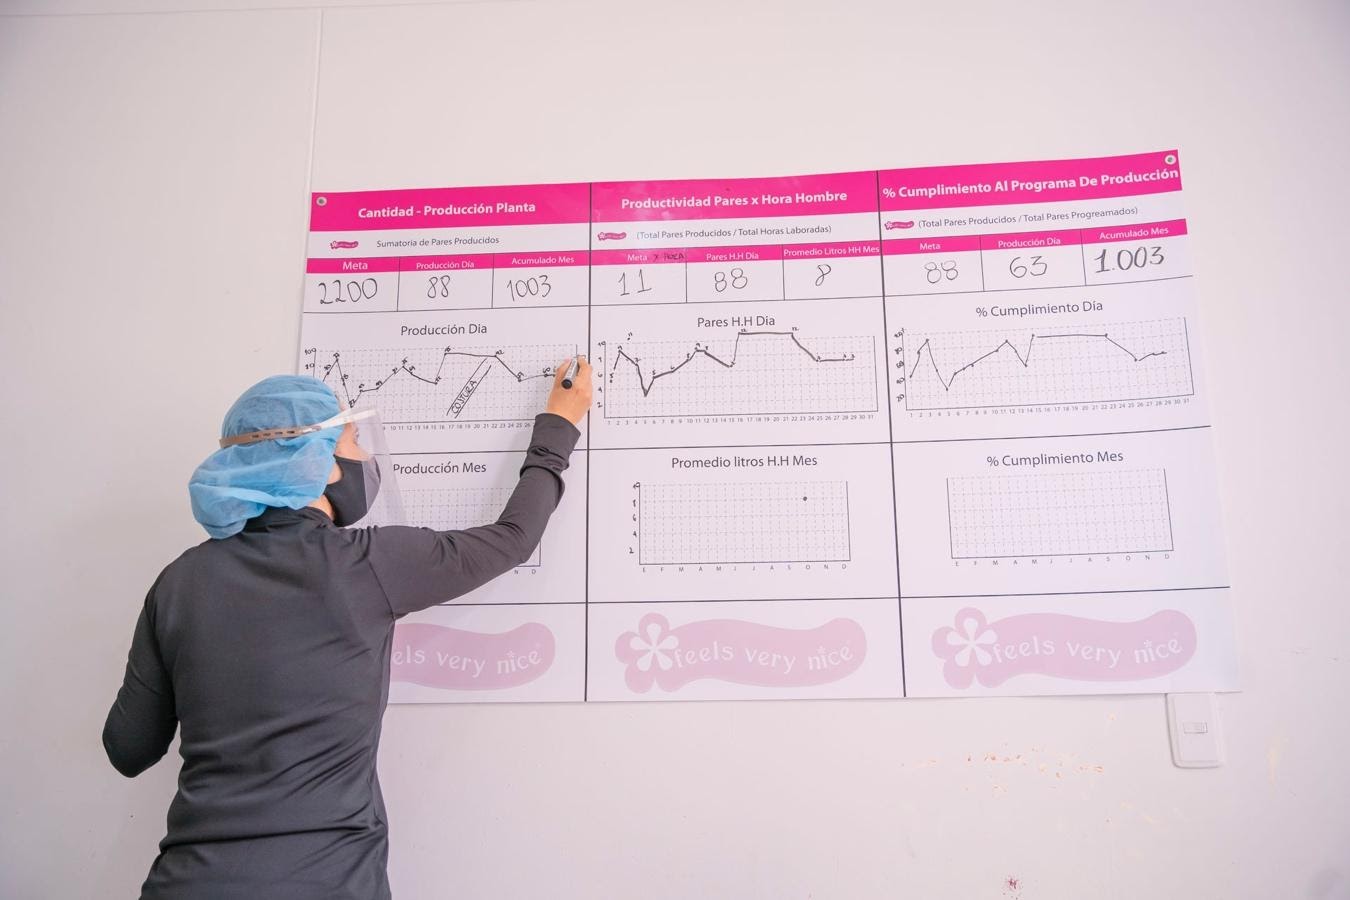 Cantidad - Producción Planta
Sumatoria de Pares Producidos
Meta Producción Día Acumulado Mes
2200 88 1003
Producción Dia
100
COSTURA
10 11 12 13 14 15 16 17 18 19 20 21 22 23 24 25 26 27
Producción Mes
N D
els very nice
Productividad Pares x Hora Hombre
(Total Pares Producidos / Total Horas Laboradas)
Meta x HORA Pares H.H Día Promedio Litros HH Mes
11 88 8
Pares H.H Dia
1 2 3 4 5 6 7 8 9 10 11 12 13 14 15 16 17 18 19 20 21 22 23 24 25 26 27 28 29 30 31
Promedio litros H.H Mes
10
8
6
4
2
E F M A M J J A S O N D
feels very nice
% Cumplimiento Al Programa De Producción
(Total Pares Producidos / Total Pares Progreamados)
Meta Producción Día Acumulado Mes
88 63 1.003
% Cumplimiento Día
1 2 3 4 5 6 7 8 9 10 11 12 13 14 15 16 17 18 19 20 21 22 23 24 25 26 27 28 29 30 31
% Cumplimiento Mes
E F M A M J J A S O N D
feels very nice